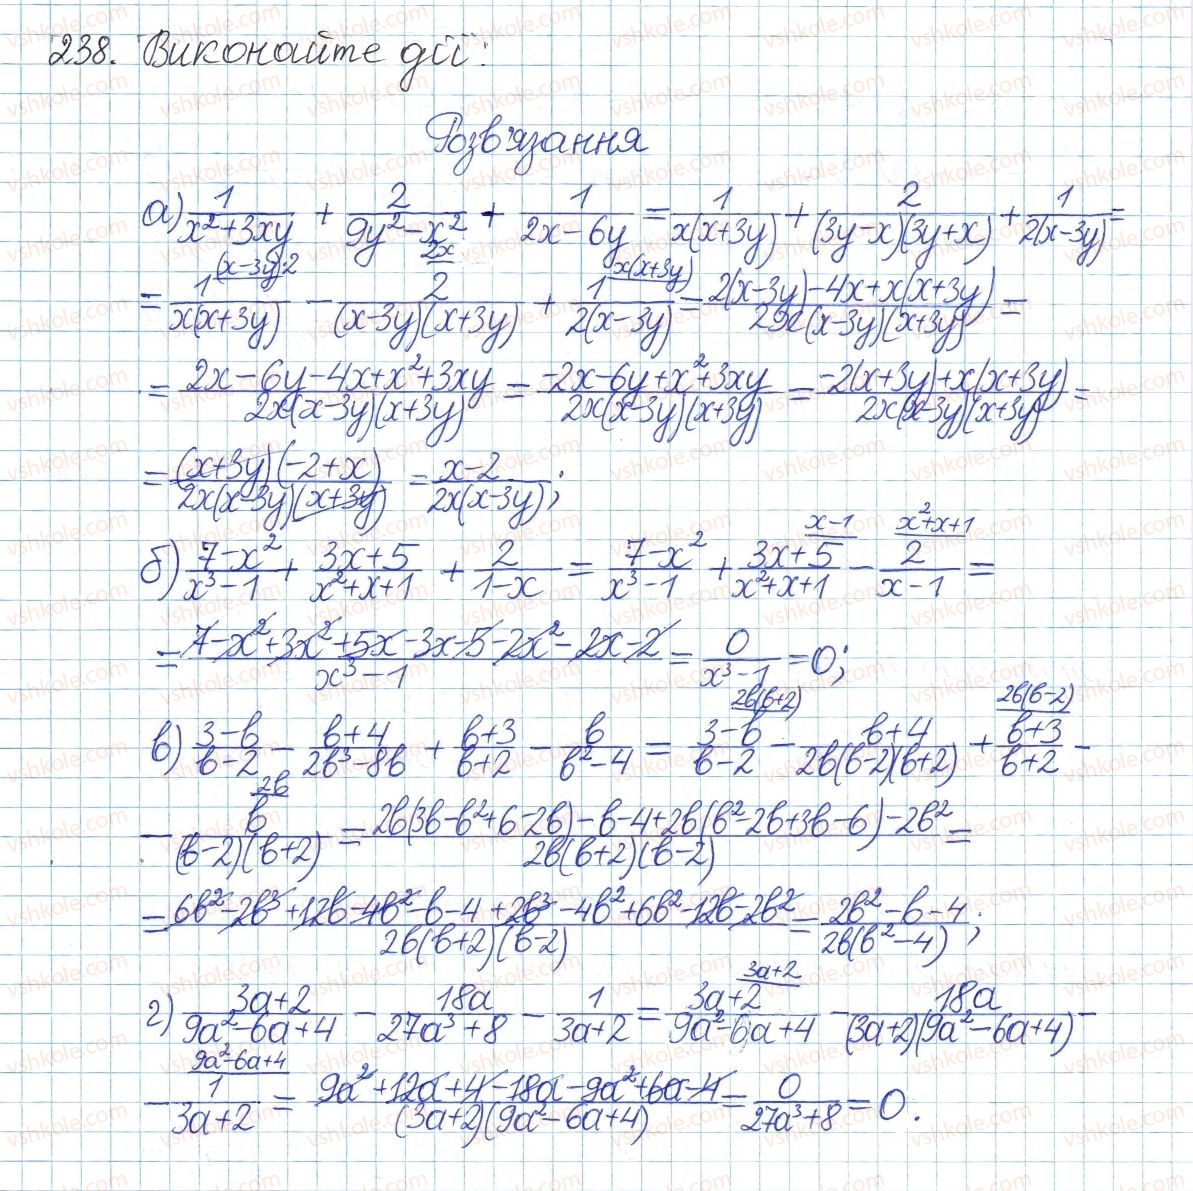 238. Виконайте дії:
Розв'язання
а) 1/(x²+3xy) + 2/(9y²-x²) + 1/(2x-6y) = 1/(x(x+3y)) + 2/((3y-x)(3y+x)) + 1/(2(x-3y)) =
= 1/(x(x+3y)) (x-3y)2 - 2/((x-3y)(x+3y)) 2x + 1/(2(x-3y)) x(x+3y) = (2(x-3y)-4x+x(x+3y))/(2x(x-3y)(x+3y)) =
= (2x-6y-4x+x²+3xy)/(2x(x-3y)(x+3y)) = (-2x-6y+x²+3xy)/(2x(x-3y)(x+3y)) = (-2(x+3y)+x(x+3y))/(2x(x-3y)(x+3y)) =
= ((x+3y)(-2+x))/(2x(x-3y)(x+3y)) = (x-2)/(2x(x-3y));
б) (7-x²)/(x³-1) + (3x+5)/(x²+x+1) + 2/(1-x) = (7-x²)/(x³-1) + (3x+5)/(x²+x+1) x-1 - 2/(x-1) x²+x+1 =
= (7-x²+3x²+5x-3x-5-2x²-2x-2)/(x³-1) = 0/(x³-1) = 0;
в) (3-в)/(в-2) - (в+4)/(2в³-8в) + (в+3)/(в+2) - в/(в²-4) = (3-в)/(в-2) 2в(в+2) - (в+4)/(2в(в-2)(в+2)) + (в+3)/(в+2) 2в(в-2) -
- в/((в-2)(в+2)) 2в = (2в(3в-в²+6-2в)-в-4+2в(в²-2в+3в-6)-2в²)/(2в(в+2)(в-2)) =
= (6в²-2в³+12в-4в²-в-4+2в³-4в²+6в²-12в-2в²)/(2в(в+2)(в-2)) = (2в²-в-4)/(2в(в²-4));
г) (3a+2)/(9a²-6a+4) - 18a/(27a³+8) - 1/(3a+2) = (3a+2)/(9a²-6a+4) 3a+2 - 18a/((3a+2)(9a²-6a+4)) -
- 1/(3a+2) 9a²-6a+4 = (9a²+12a+4-18a-9a²+6a-4)/((3a+2)(9a²-6a+4)) = 0/(27a³+8) = 0.